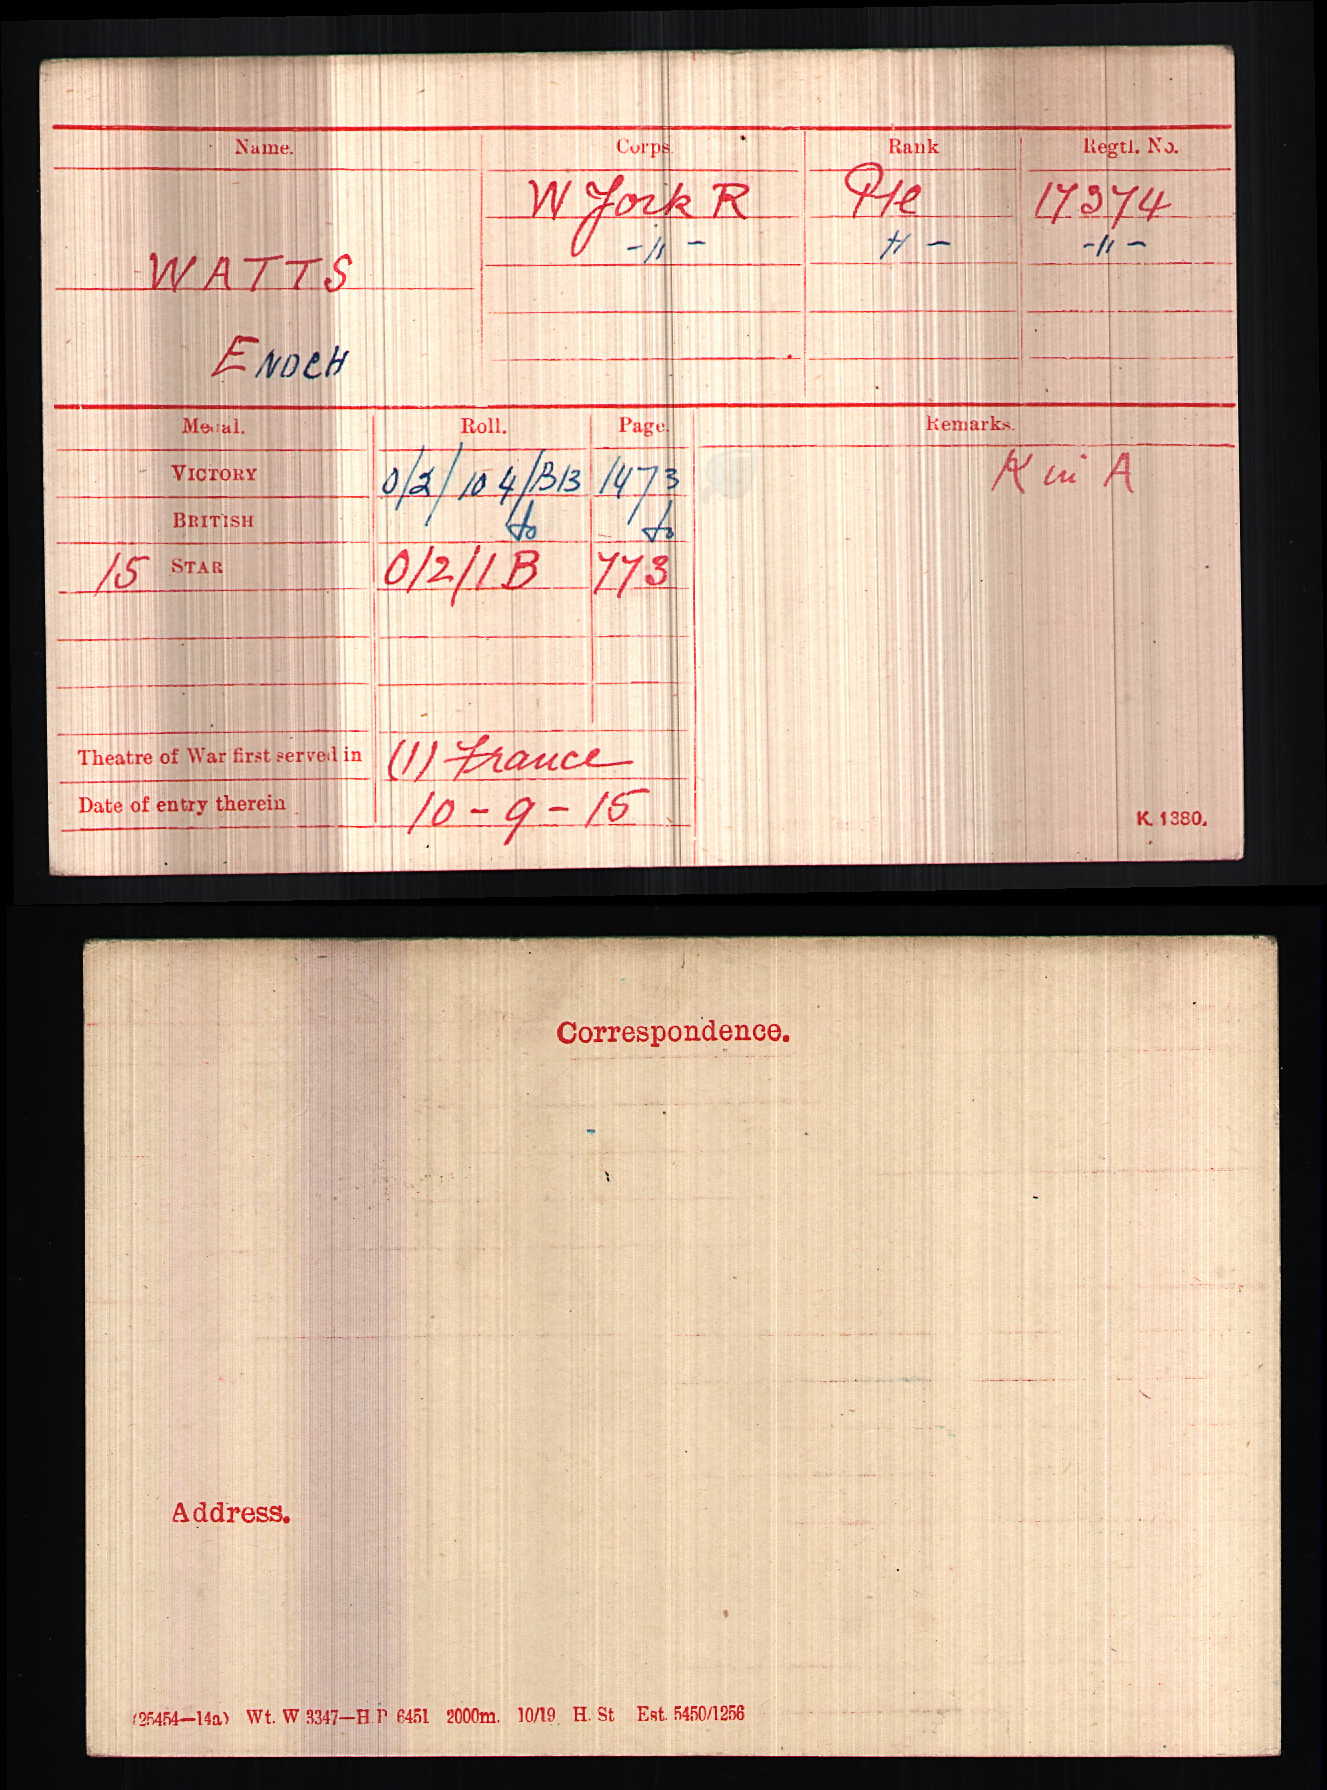 Name. Corps. Rank Regtl. No.
W York R Pte 17374
-11- 11- -11-
WATTS
ENOCH
Medal. Roll. Page. Remarks.
VICTORY 0/2/104/B13 1473 K in A
BRITISH do do
15 STAR 0/2/1B 773
Theatre of War first served in (1) France
Date of entry therein 10-9-15
K. 1380.
Correspondence.
Address.
(25454—14a) Wt. W 3347—H P 6451 2000m. 10/19 H. St Est. 5450/1256